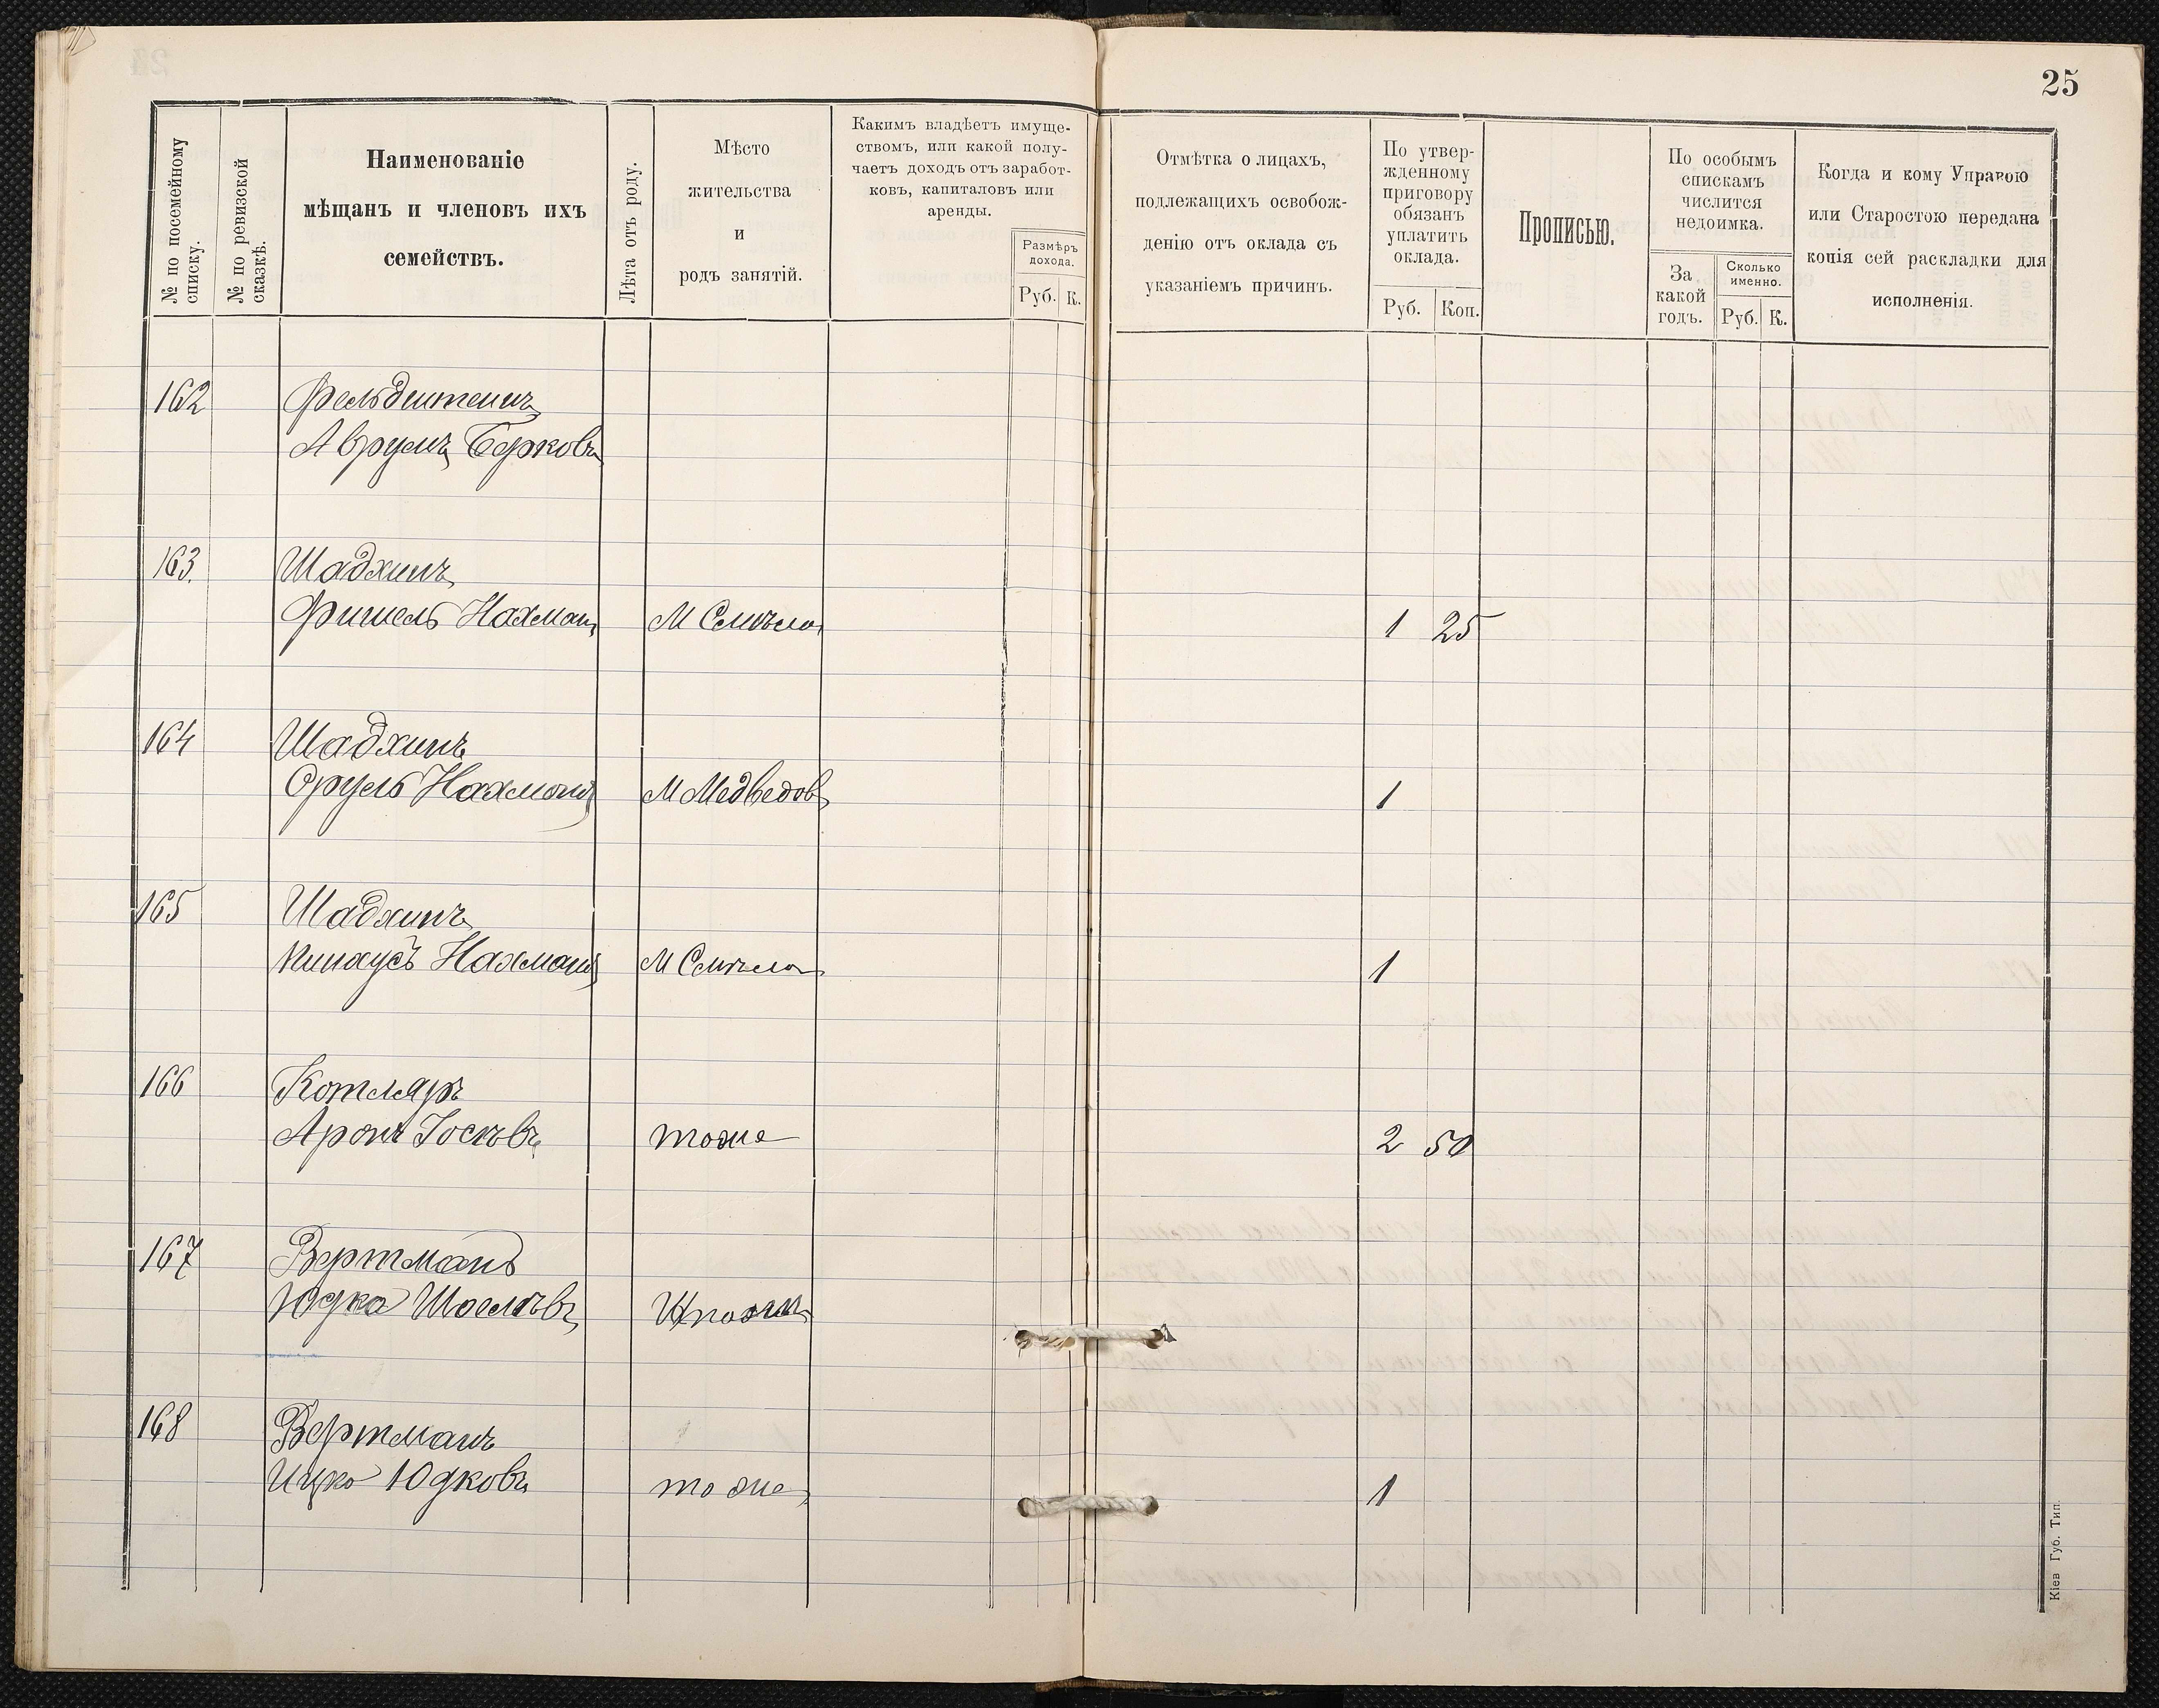 25
№ по посемейному
списку.
№ по ревизской
сказкѣ.
Наименованіе
мѣщанъ и членовъ ихъ
семействъ.
Лѣта отъ роду.
Мѣсто
жительства
и
родъ занятій.
Какимъ владѣетъ имуще-
ствомъ, или какой полу-
чаетъ доходъ отъ заработ-
ковъ, капиталовъ или
аренды.
Размѣръ
дохода.
Руб. К.
Отмѣтка о лицахъ,
подлежащихъ освобож-
денію отъ оклада съ
указаніемъ причинъ.
По утвер-
жденному
приговору
обязанъ
уплатить
оклада.
Руб. Коп.
Прописью.
По особымъ
спискамъ
числится
недоимка.
За
какой
годъ.
Сколько
именно.
Руб. К.
Когда и кому Управою
или Старостою передана
копія сей раскладки для
исполненія.
162 Фельдштейнъ
Аврумъ Берковъ
163. Шадхинъ
Фишель Нахман М Смѣла 1 25
164 Шадхинъ
Сруль Нахман М Медведов 1
165 Шадхинъ
Пинхусъ Нахман М Смѣла 1
166 Котляръ
Аронъ Іосевъ тоже 2 50
167 Вертманъ
Юдка
168 Вертманъ
Ицко Юдковъ тоже 1
Кіев Губ. Тип.